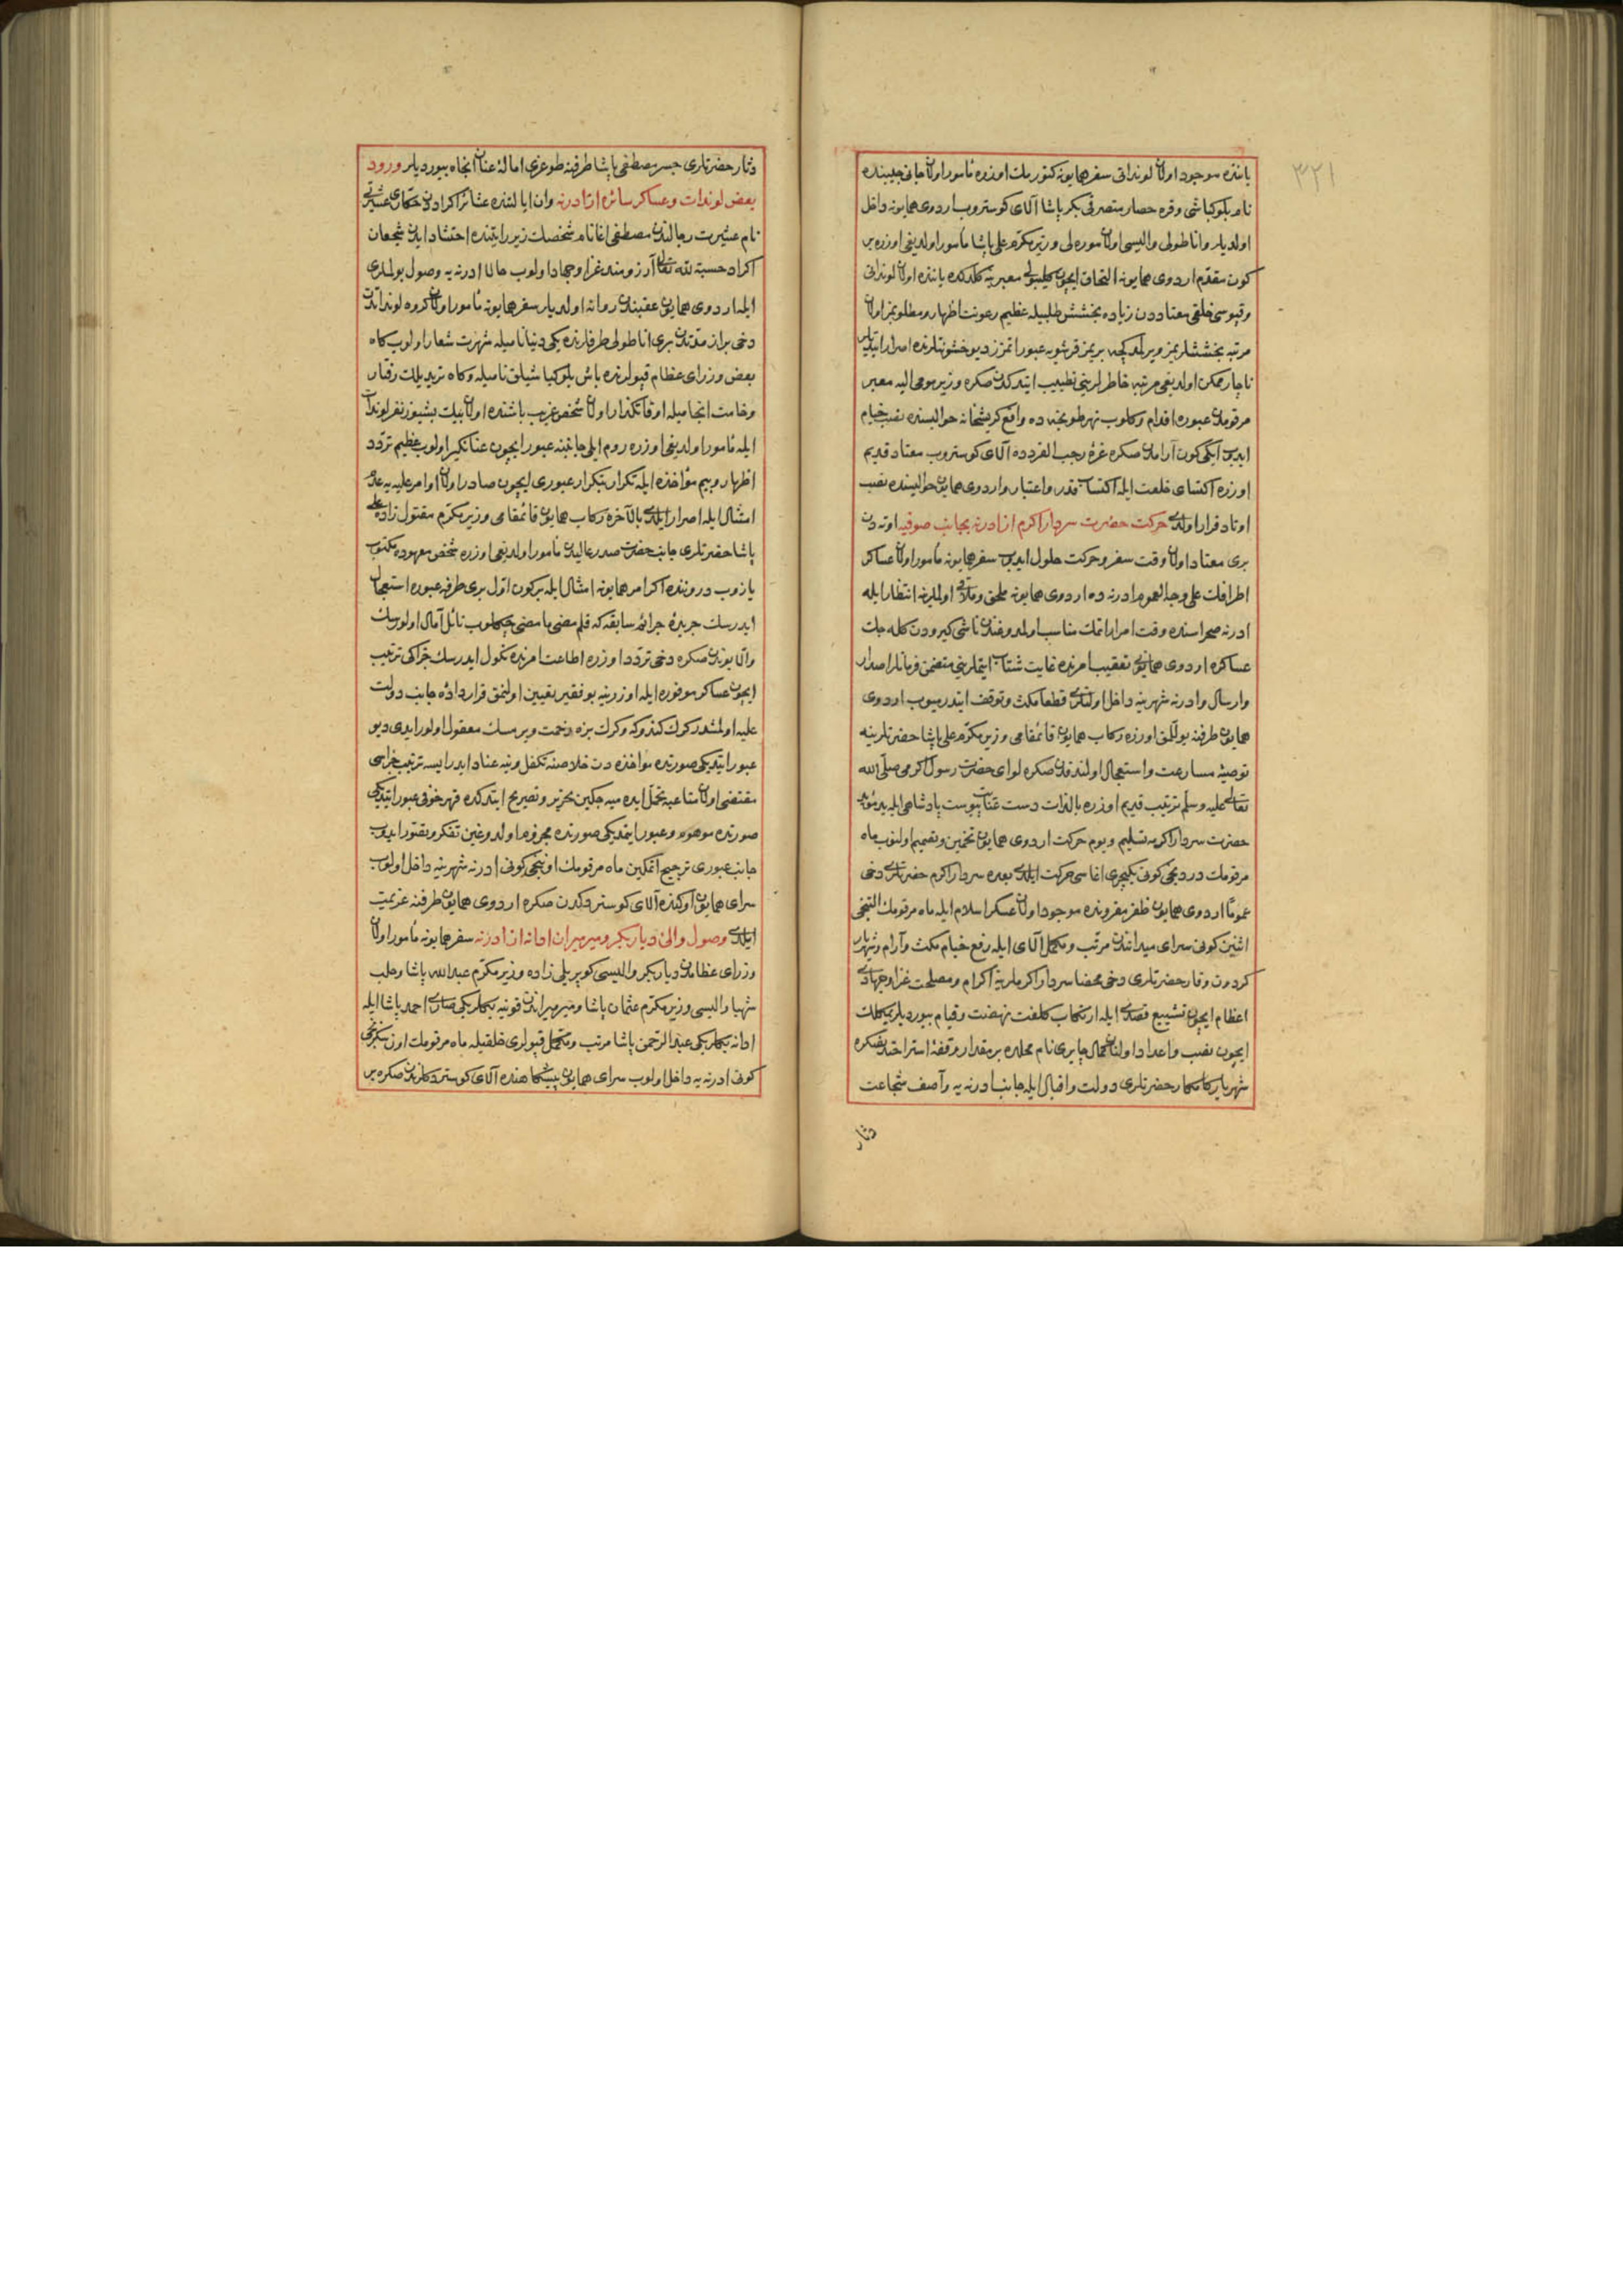 ٣٢١
یاننده موجود اولان لونداتی سفر همایونه کتورمك اوزره مأمور اولان جانی جیبنده
نام بلوکباشی وقره حصار متصرفی بکر پاشا آلای کوستروب اردوی همایونه داخل
اولدیلر واناطولی والیسی اولان موره لی وزیر مکرم علی پاشا مأمور اولدیغی اوزره بر
کون مقدم اردوی همایونه التحاق ایچون کلیبولی معبرینه کلدکده یاننده اولان لونداتی
وقپوسی خلقی معتاددن زیاده بخشش طلبیله عظیم رعونت اظهار ومطلوبمز اولان
مرتبه بخششلریمز ویرلمدکجه بریمز قرشویه عبور ایتمزز دیو خشونتلرنده اصرار ایتدیلر
ناچار ممکن اولدیغی مرتبه خاطرلرینی تطییب ایتدکدن صکره وزیر مومی الیه معبر
مرقومدن عبوره اقدام وکلوب نهر طونجه ده واقع کریشخانه حوالیسنده نصب خیام
ایدوب ایکی کون آرامدن صکره غرۀ رجب الفردده آلای کوستروب معتاد قدیم
اوزره اکتسای خلعت ایله اکتساب قدر واعتبار واردوی همایون حوالیسنده نصب
اوتاد قرار اولدی حرکت حضرت سردار اکرم از ادرنه بجانب صوفیه اوته دن
بری معتاد اولان وقت سفر وحرکت حلول ایدوب سفر همایونه مأمور اولان عساکر
اطرافك علی وجه العموم ادرنه ده اردوی همایونه ملحق وملاقی اولملرینه انتظار ایله
ادرنه صحراسنده وقت امرار ایتمك مناسب اولمدوغندن ناشی کیرودن کله جك
عساکره اردوی همایونی تعقیب امرنده غایت شتاب ایتملرینی متضمن فرمانلر اصدار
وارسال وادرنه شهرینه داخل اولنلری قطعا مکث وتوقف ایتدرمیوب اردوی
همایون طرفنه یوللمق اوزره رکاب همایون قائمقامی وزیر مکرم علی پاشا حضرتلرینه
توصیۀ مسارعت واستعجال اولندقدن صکره لوای حضرت رسول اکرمی صلی الله
تعالی علیه وسلم ترتیب قدیم اوزره بالذات دست عنایت پیوست پادشاهی ایله ید مؤید
حضرت سردار اکرمه تسلیم ویوم حرکت اردوی همایون تخمین وتصمیم اولنوب ماه
مرقومك دردنجی کونی یکیچری اغاسی حرکت ایلدی بعده سردار اکرم حضرتلری دخی
عموما اردوی همایون ظفر مقروننده موجود اولان عسکر اسلام ایله ماه مرقومك التنجی
اثنین کونی سرای میدانندن مرتب ومکمل آلای ایله رفع خیام مکث وآرام وشهریار
کردون وقار حضرتلری دخی محضا سردار اکرملرینه اکرام ومصلحت غزا وجهادی
اعظام ایچون تشییع قصدی ایله ارتکاب کلفت نهضت وقیام بیوردیلر یمکلك
ایچون نصب واعداد اولنان کمال چایری نام محلده بر مقدار وقفۀ استراحتدنصکره
شهریار کامکار حضرتلری دولت واقبال ایله جانب ادرنه یه وآصف شجاعت
دثار
دثار حضرتلری جسر مصطفی پاشا طرفنه طوغری امالۀ عنان اتجاه بیوردیلر ورود
بعض لوندات وعساکر سائره از ادرنه وان ایالتنده عشائر اکراددن حکاری عشیرتی
نام عشیرت رجالندن مصطفی اغا نام شخصك زیر رایتنده احتشاد ایدن شجعان
اکراد حسبة لله تعالی آرزومند غزا وجهاد اولوب حالا ادرنه یه وصول بولملری
ایله اردوی همایون عقبندن روانه اولدیلر سفر همایونه مأمور اولان کروه لونداتدن
دخی براز مدتدن بری اناطولی طرفلرنده یکی دنیا نامیله شهرت شعار اولوب کاه
بعض وزرای عظام قپولرنده باش بلوکباشیلق نامیله وکاه تریدیلك رفتار
وخامت انجامیله اوقاتکذار اولان شخص غریب باشنده اولان بیك بشیوز نفر لوندات
ایله مأمور اولدیغی اوزره روم ایلی جانبنه عبور ایچون عنانکیر اولوب عظیم تردد
اظهار وبیم مؤاخذه ایله تکرار بتکرار عبوری ایچون صادر اولان اوامر علیه یه عدم
امتثال ایله اصرار ایلدی بالآخره رکاب همایون قائمقامی وزیر مکرم مقتول زاده علی
پاشا حضرتلری جانب حضرت صدر عالیدن مأمور اولدیغی اوزره شخص معهوده مکتوب
یازوب دروننده اکر امر همایونه امتثال ایله برکون اول بری طرفه عبوره استعجال
ایدرسك جریدۀ جرائم سابقه که قلم مضی ما مضی چکلوب نائل آمال اولورسك
والا بوندن صکره دخی تردد اوزره اطاعت امرنده نکول ایدرسك جزاکی ترتیب
ایچون عساکر موفوره ایله اوزرینه بو فقیر تعیین اولنمق قراردادۀ جانب دولت
علیه اولمشدر کرك کندوکه وکرك بزه زحمت ویرمسك معقول اولور ایدی دیو
عبور ایتدیکی صورتده مؤاخذه دن خلاصنه تکفل وینه عناد ایدر ایسه ترتیب جزاسی
مقتضی اولان متاعبه تحمل ایده میه جکین تحریر وتصریح ایتدکده قهر خوفی عبور ایتدیکی
صورتده موهوم وعبور ایتمدیکی صورتده مجزوم اولدوغین تفکر وتصور ایدوب
جانب عبوری ترجیح ایتمکین ماه مرقومك اوننجی کونی ادرنه شهرینه داخل اولوب
سرای همایون اوکنده آلای کوستردکدن صکره اردوی همایون طرفنه عزیمت
ایلدی وصول والیء دیاربکر ومیرمیران ادانه از ادرنه سفر همایونه مأمور اولان
وزرای عظامدن دیاربکر والیسی کوپریلی زاده وزیر مکرم عبدالله پاشا وحلب
شهبا والیسی وزیر مکرم عثمان پاشا ومیرمیراندن قونیه بکلربکی صاری احمد پاشا ایله
ادانه بکلربکی عبدالرحمن پاشا مرتب ومکمل قپولری خلقیله ماه مرقومك اون سکزنجی
کونی ادرنه یه داخل اولوب سرای همایون پیشکاهنده آلای کوستردکلرندن صکره بر